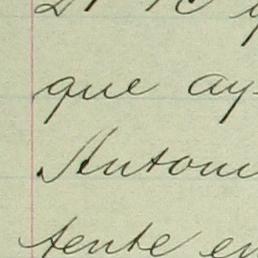 que ay
Antoni
tente en